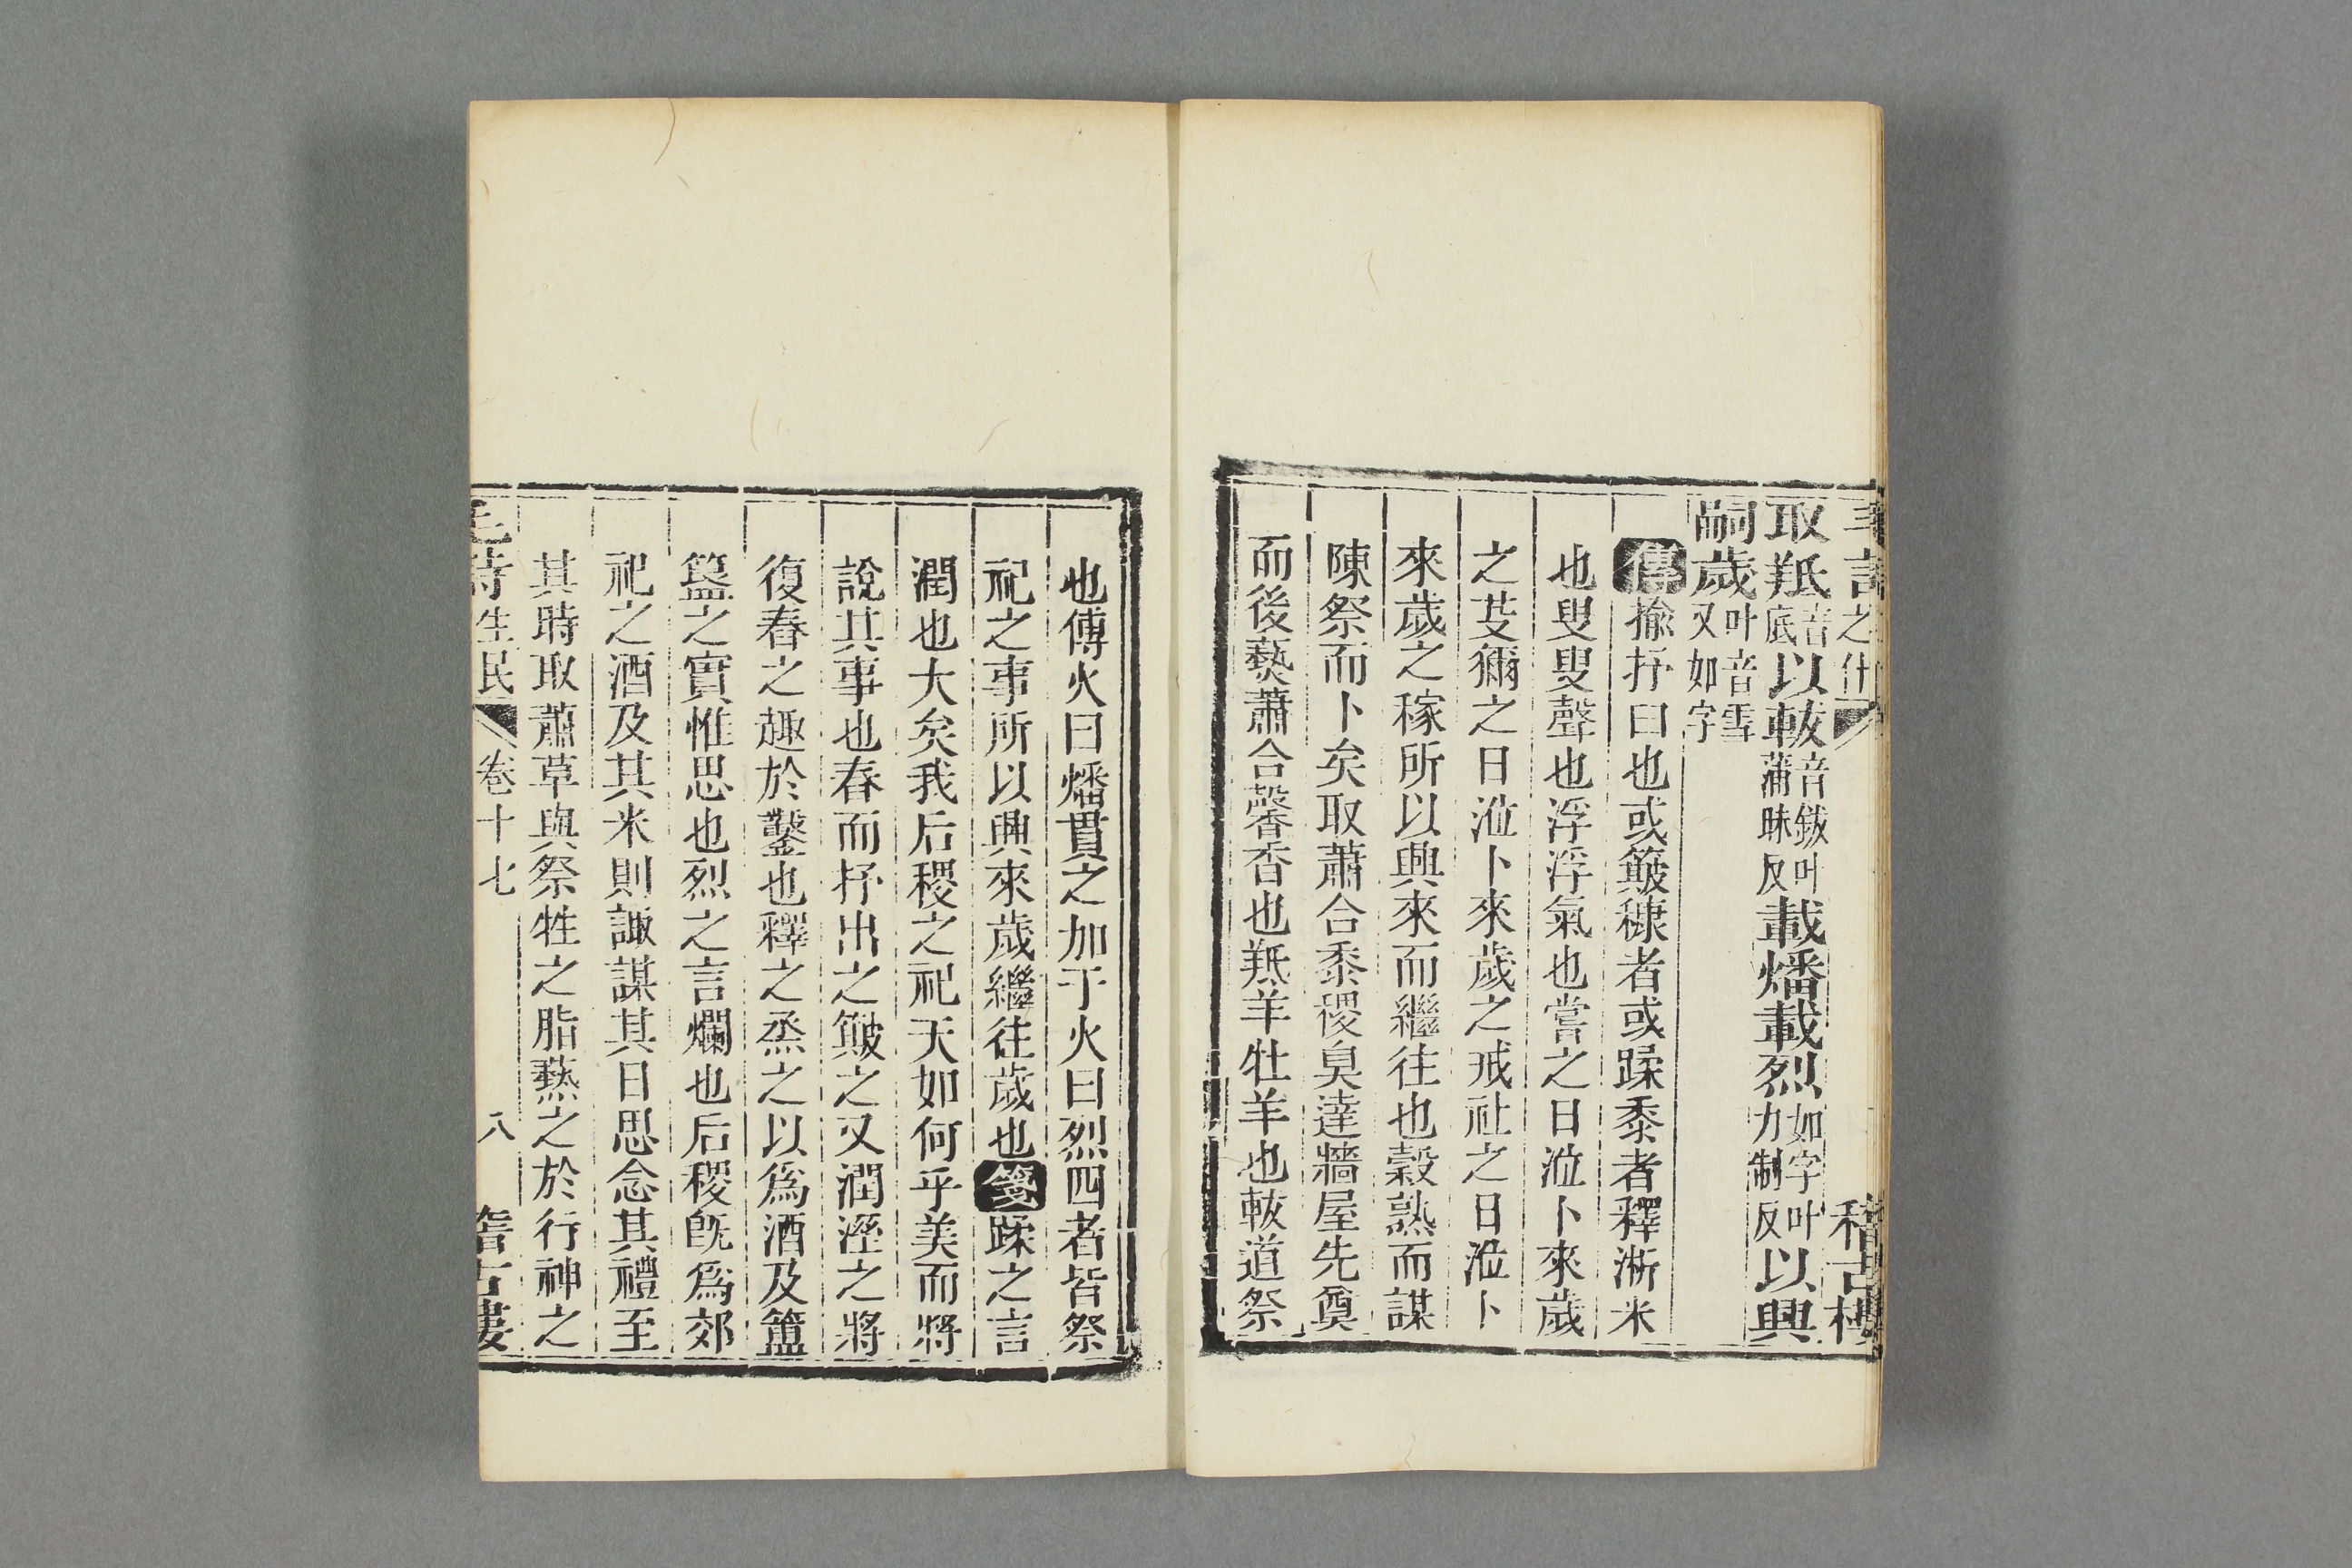 之什 稽古樓
取羝音底以軷音鈸叶蒲昧反載燔載烈如字叶力制反以興
嗣歲叶音雪又如字
傳揄抒臼也或簸穅者或蹂黍者釋淅米
也叟叟聲也浮浮氣也嘗之日涖卜來歲
之芟獮之日涖卜來歲之戒社之日涖卜
來歲之稼所以興來而繼往也穀熟而謀
陳祭而卜矣取蕭合黍稷臭達牆屋先奠
而後爇蕭合馨香也羝羊牡羊也軷道祭
也傅火曰燔貫之加于火曰烈四者皆祭
祀之事所以興來歲繼往歲也箋蹂之言
潤也大矣我后稷之祀天如何乎美而將
說其事也舂而抒出之簸之又潤溼之將
復舂之趣於鑿也釋之烝之以爲酒及簠
簋之實惟思也烈之言爛也后稷旣爲郊
祀之酒及其米則諏謀其日思念其禮至
其時取蕭草與祭牲之脂爇之於行神之
毛詩生民 卷十七 八 稽古樓